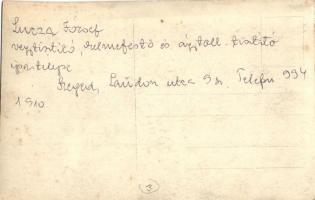 Lucza József
vegytisztító, kelmefestő és ágytoll-tisztító
ipartelepe
Szeged, Laudon utca 9 sz. Telefon 994
1910